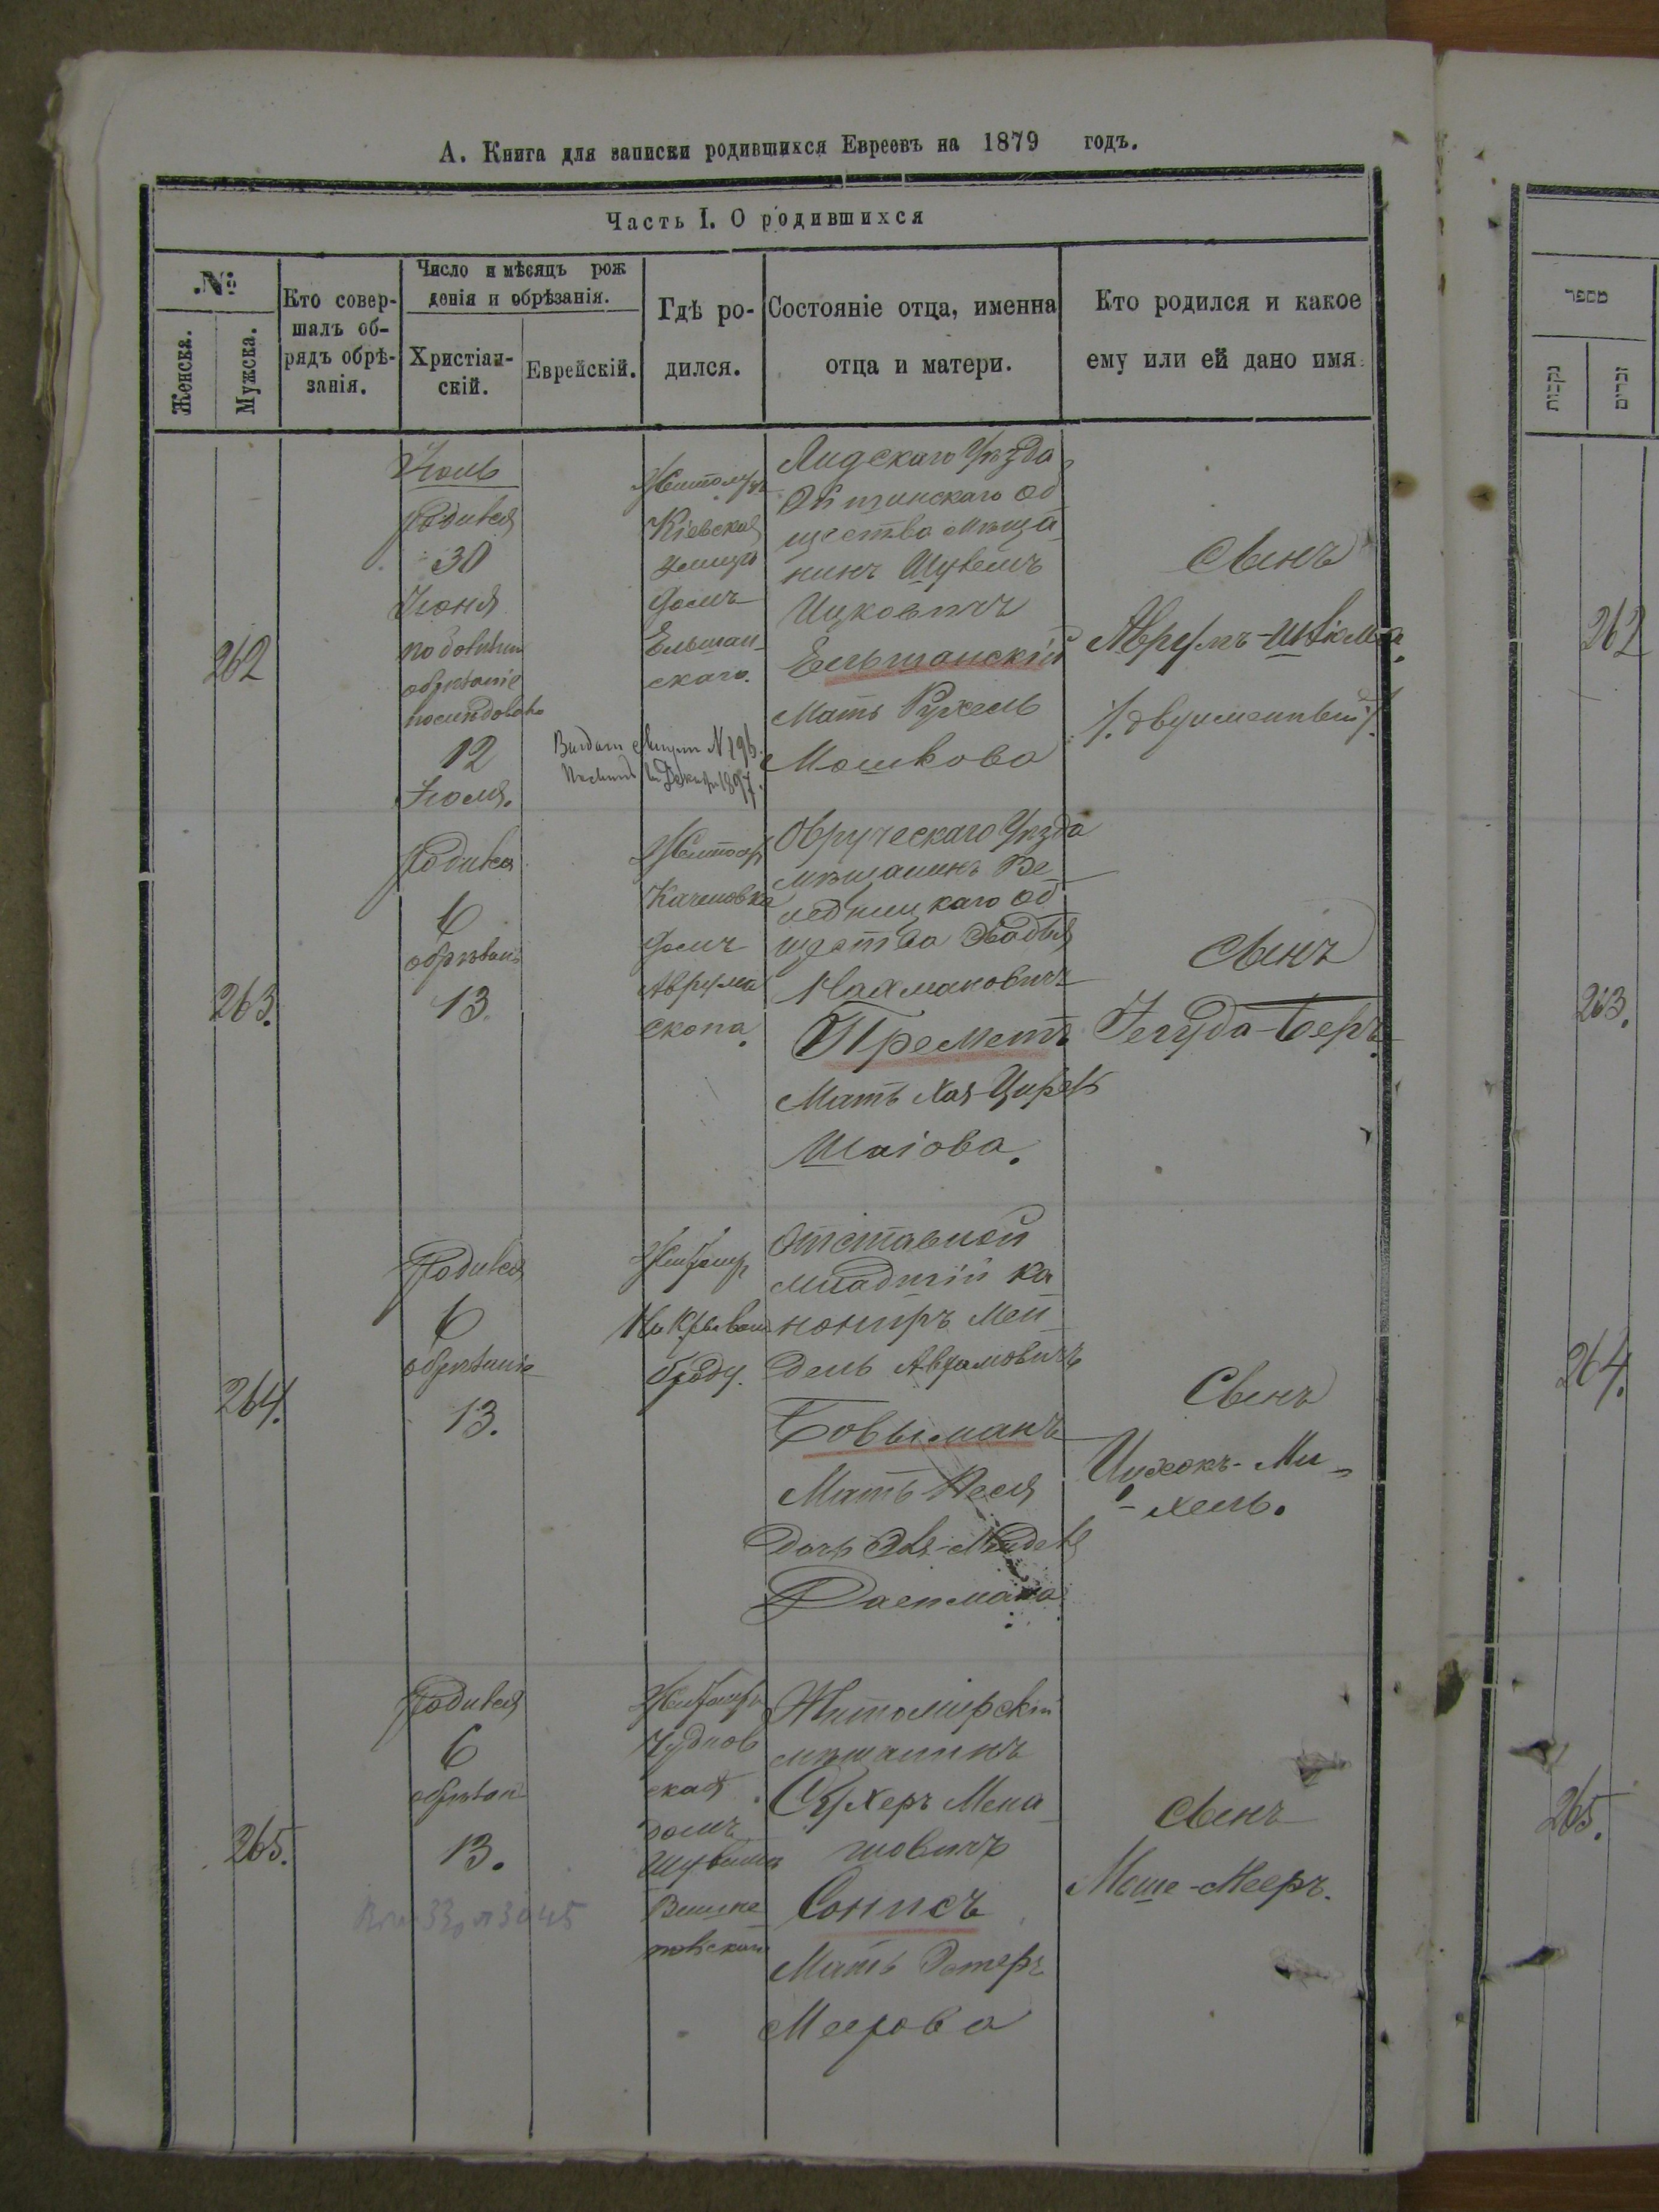 А. Книга для записки родившихся Евреевъ на 1879 годъ.
Часть I. О родившихся
№
Женска.
Мужска.
Кто совер-
шалъ об-
рядъ обрѣ-
занія.
Число и мѣсяцъ рож
денія и обрѣзанія.
Христіан-
скій.
Еврейскій.
Гдѣ ро-
дился.
Состояніе отца, именна
отца и матери.
Кто родился и какое
ему или ей дано имя.
262
Июль
Родился
30
Июня
обрѣзаніе
12
Июля.
Житомір
Кіевская
улица
домъ
Ельшан-
скаго.
Лидскаго Уѣзда
скаго Об
щества мѣща
нинъ Шувелъ
Ицковичъ
Ельшанскій
Мать Рухель
Мошкова
Сынъ
Аврумъ-Шлiома
/. двуименный ./
№ 196
1897.
263.
Родился
6
обрѣзаніе
13.
Житомір
Качановка
домъ
Аврума
Скопа.
Овруческаго Уѣзда
мѣщанинъ Ве
ледницкаго об
щества Овадья
Нахмановичъ
Преметъ
Мать Хая-Цирель
Шаіова.
Сынъ
Іегуда-Беръ.
264.
Родился
6
обрѣзаніе
13.
Житомір
Броду.
Отставной
младшій ка
нониръ Мен
дель Аврамовичъ
Бовыманъ
Мать Неся
дочь
Сынъ
Ицхокъ-Ми-
-хель.
265.
Родился
6
обрѣзан
13.
Житомір
Чуднов
ская
домъ
Вишне
повскаго
Житомирскій
мѣщанинъ
Сухеръ Мена
шовичъ
Сонисъ
Мать Эстеръ
Меерова
Сынъ
Моше-Мееръ.
מספר
נקבות
זכרים
262
263.
264.
265.